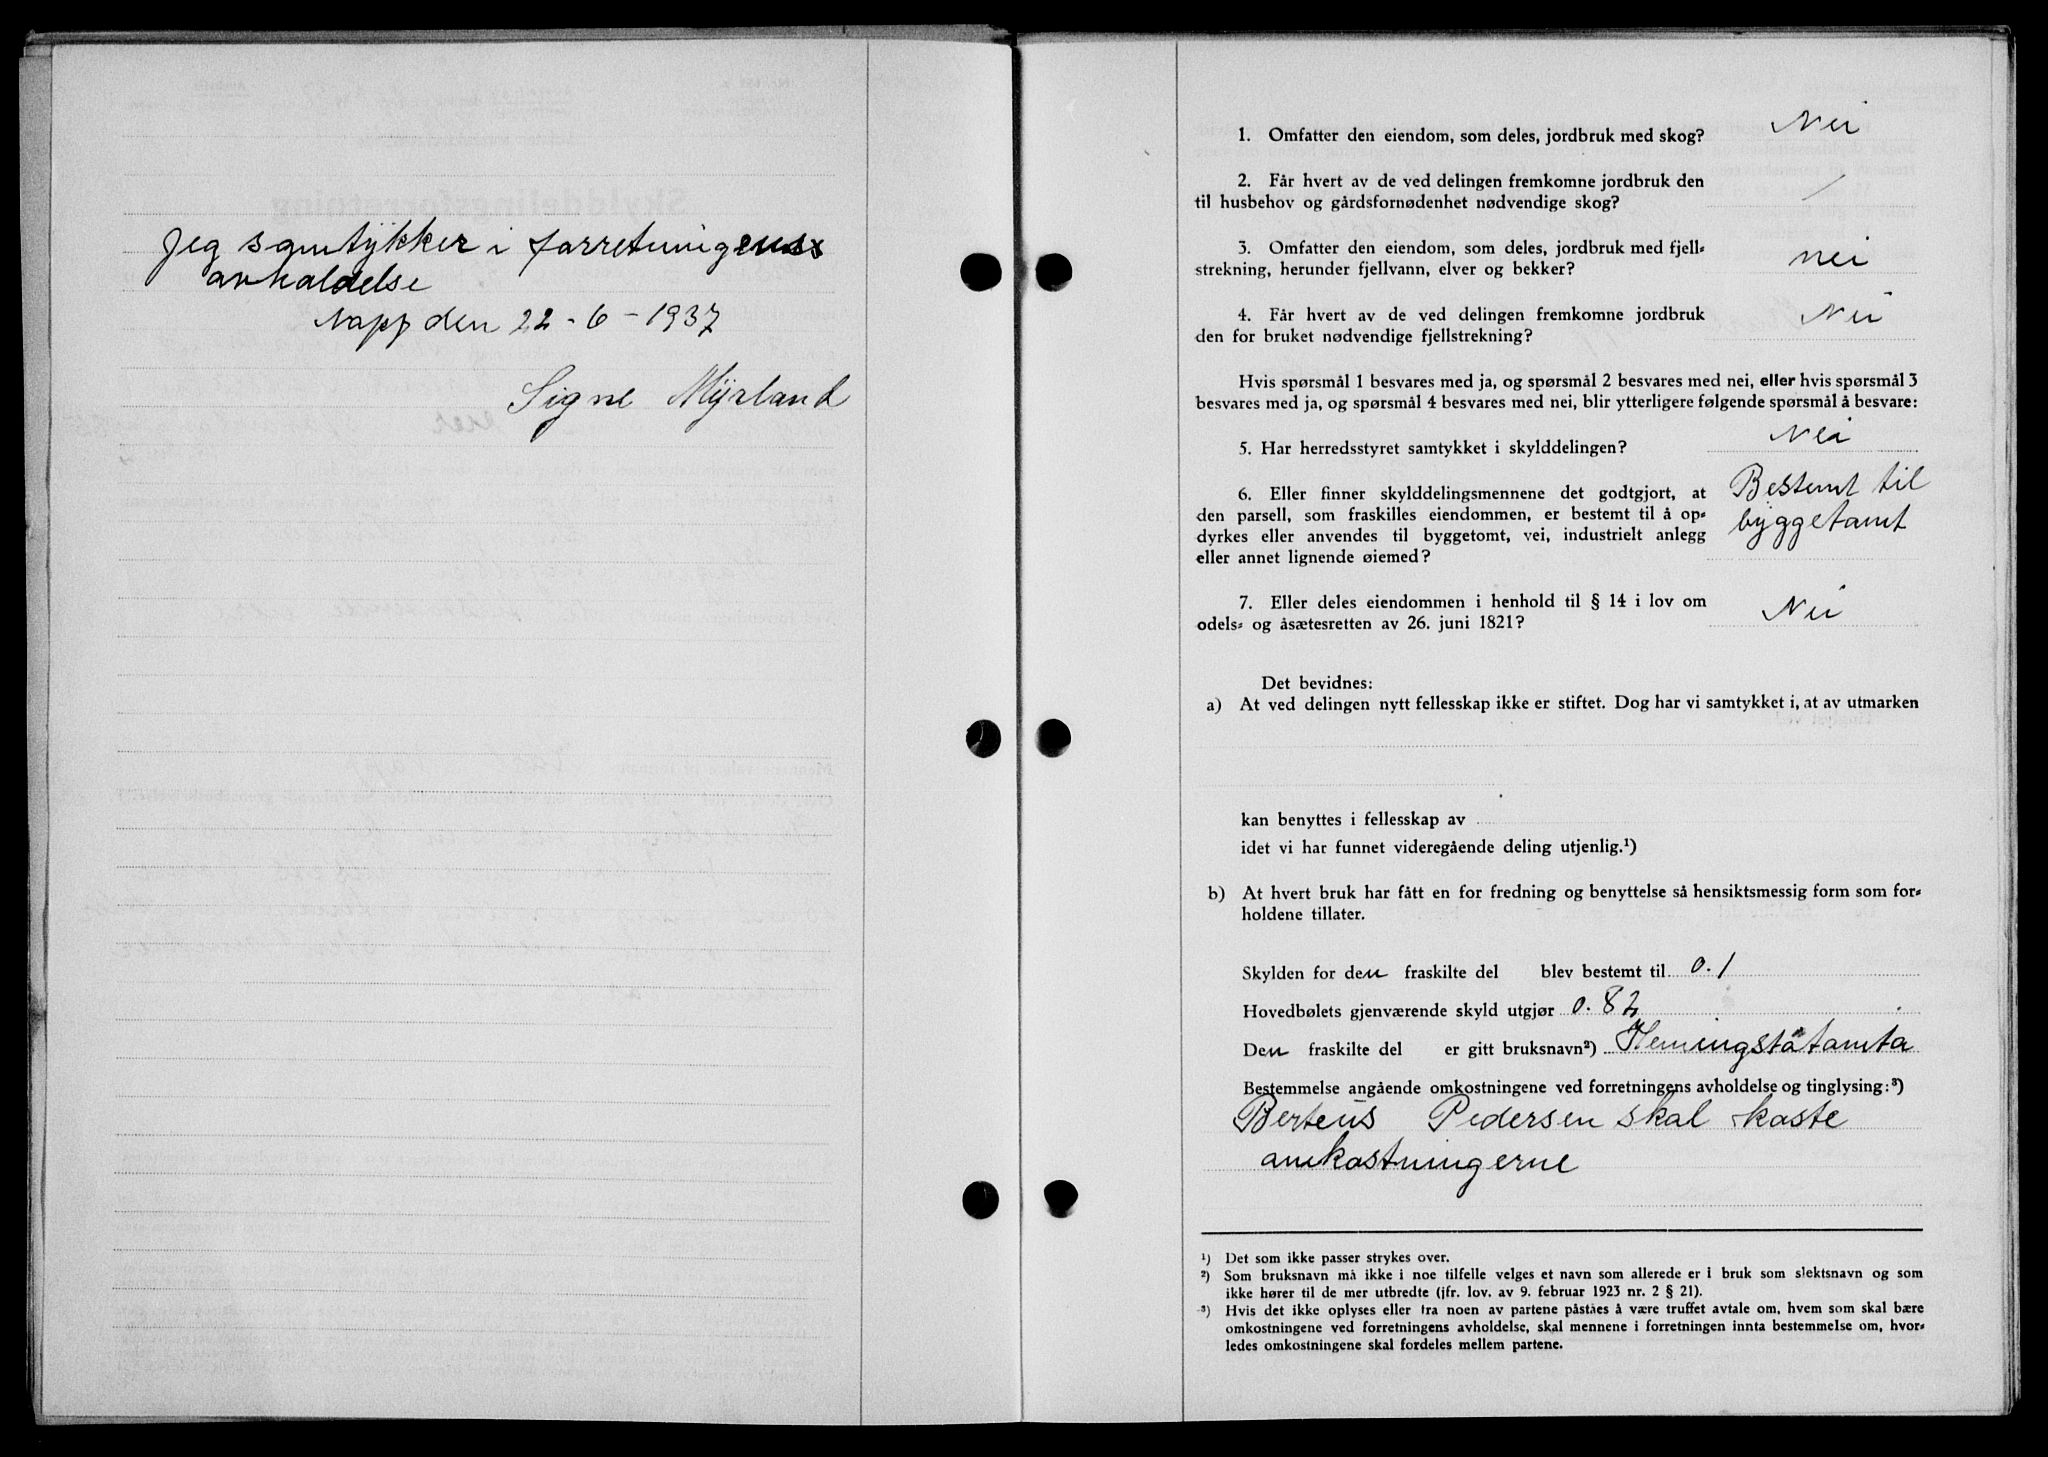 Jeg samtykker i forretningens
avholdelse
Napp den 22-6-1937
Signe Myrland
1. Omfatter den eiendom, som deles, jordbruk med skog? Nei
2. Får hvert av de ved delingen fremkomne jordbruk den
til husbehov og gårdsfornødenhet nødvendige skog? /
3. Omfatter den eiendom, som deles, jordbruk med fjell-
strekning, herunder fjellvann, elver og bekker? nei
4. Får hvert av de ved delingen fremkomne jordbruk
den for bruket nødvendige fjellstrekning? Nei
Hvis spørsmål 1 besvares med ja, og spørsmål 2 besvares med nei, eller hvis spørsmål 3
besvares med ja, og spørsmål 4 besvares med nei, blir ytterligere følgende spørsmål å besvare:
5. Har herredsstyret samtykket i skylddelingen? Nei
6. Eller finner skylddelingsmennene det godtgjort, at
den parsell, som fraskilles eiendommen, er bestemt til å op-
dyrkes eller anvendes til byggetomt, vei, industrielt anlegg
eller annet lignende øiemed?
Bestemt til
byggetomt
7. Eller deles eiendommen i henhold til § 14 i lov om
odels- og åsætesretten av 26. juni 1821? Nei
Det bevidnes:
a) At ved delingen nytt fellesskap ikke er stiftet. Dog har vi samtykket i, at av utmarken
kan benyttes i fellesskap av
idet vi har funnet videregående deling utjenlig.¹)
b) At hvert bruk har fått en for fredning og benyttelse så hensiktsmessig form som for-
holdene tillater.
Skylden for den fraskilte del blev bestemt til 0.1
Hovedbølets gjenværende skyld utgjør 0.82
Den fraskilte del er gitt bruksnavn²) Hemingståtomta
Bestemmelse angående omkostningene ved forretningens avholdelse og tinglysing:³)
Berteus Pedersen skal koste
omkostningerne
¹) Det som ikke passer strykes over.
²) Som bruksnavn må ikke i noe tilfelle velges et navn som allerede er i bruk som slektsnavn og som
ikke hører til de mer utbredte (jfr. lov. av 9. februar 1923 nr. 2 § 21).
³) Hvis det ikke oplyses eller fra noen av partene påståes å være truffet avtale om, hvem som skal bære
omkostningene ved forretningens avholdelse, skal mennene i forretningen innta bestemmelse om, hvor-
ledes omkostningene skal fordeles mellem partene.